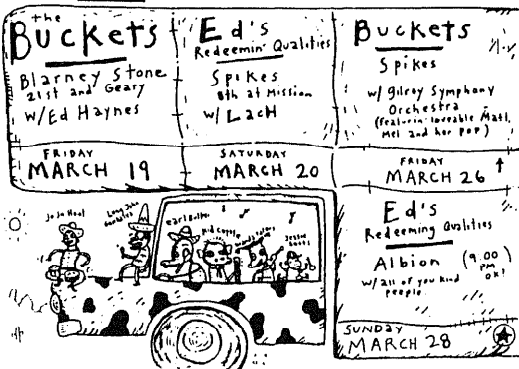 the
Buckets
Blarney Stone
21st and Geary
w/Ed Haynes
FRIDAY
MARCH 19
Ed's
Redeemin' Qualities
Spikes
8th at Mission
w/ Lach
SATURDAY
MARCH 20
Buckets
Spikes
w/ Gilroy Symphony
Orchestra
(featurin' loveable Matt,
Mel and her pop)
FRIDAY
MARCH 26
Ed's
Redeeming Qualities
Albion (9:00
pm
ok!)
w/ all of you kind
people.
SUNDAY
MARCH 28
JoJo Hool
Long John
earl Butter
Kid Coyote
Jessie